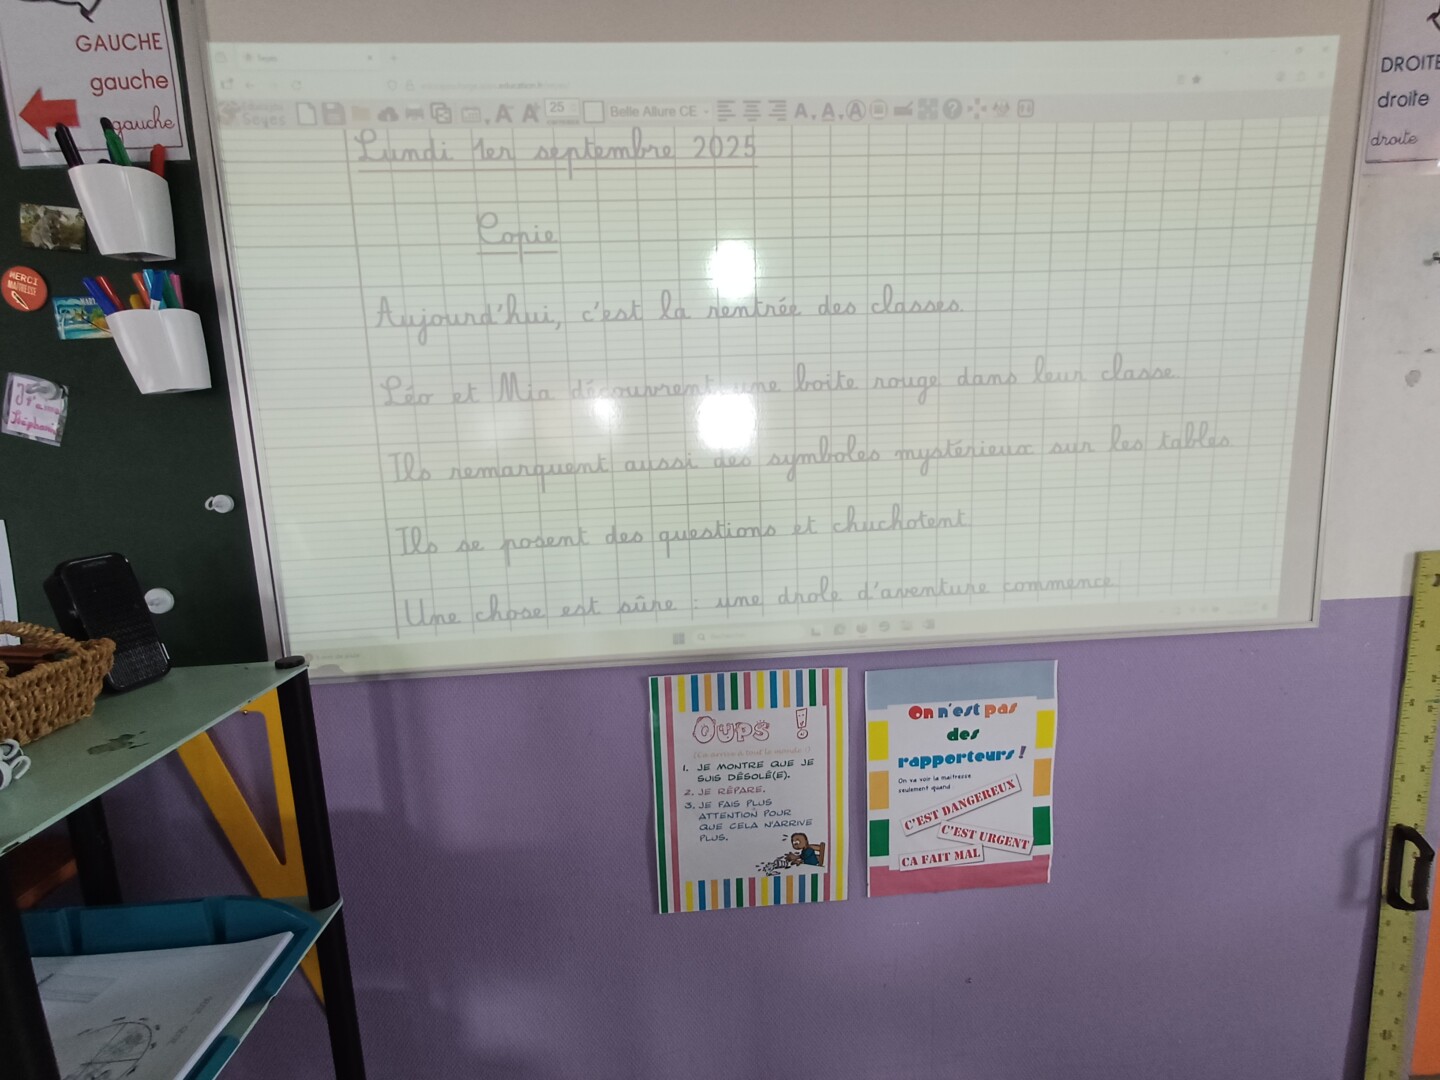 GAUCHE
gauche
gauche
MERCI
MAÎTRESSE
25
Belle Allure CE
Lundi 1er septembre 2025
Copie
Aujourd'hui, c'est la rentrée des classes.
Léo et Mia découvrent une boite rouge dans leur classe.
Ils remarquent aussi des symboles mystérieux sur les tables.
Ils se posent des questions et chuchotent.
Une chose est sûre : une drole d'aventure commence.
DROITE
droite
droite
OUPS !
1. JE MONTRE QUE JE
SUIS DÉSOLÉ(E).
2. JE RÉPARE.
3. JE FAIS PLUS
ATTENTION POUR
QUE CELA N'ARRIVE
PLUS.
On n'est pas
des
rapporteurs !
On va voir la maîtresse
seulement quand
C'EST DANGEREUX
C'EST URGENT
CA FAIT MAL